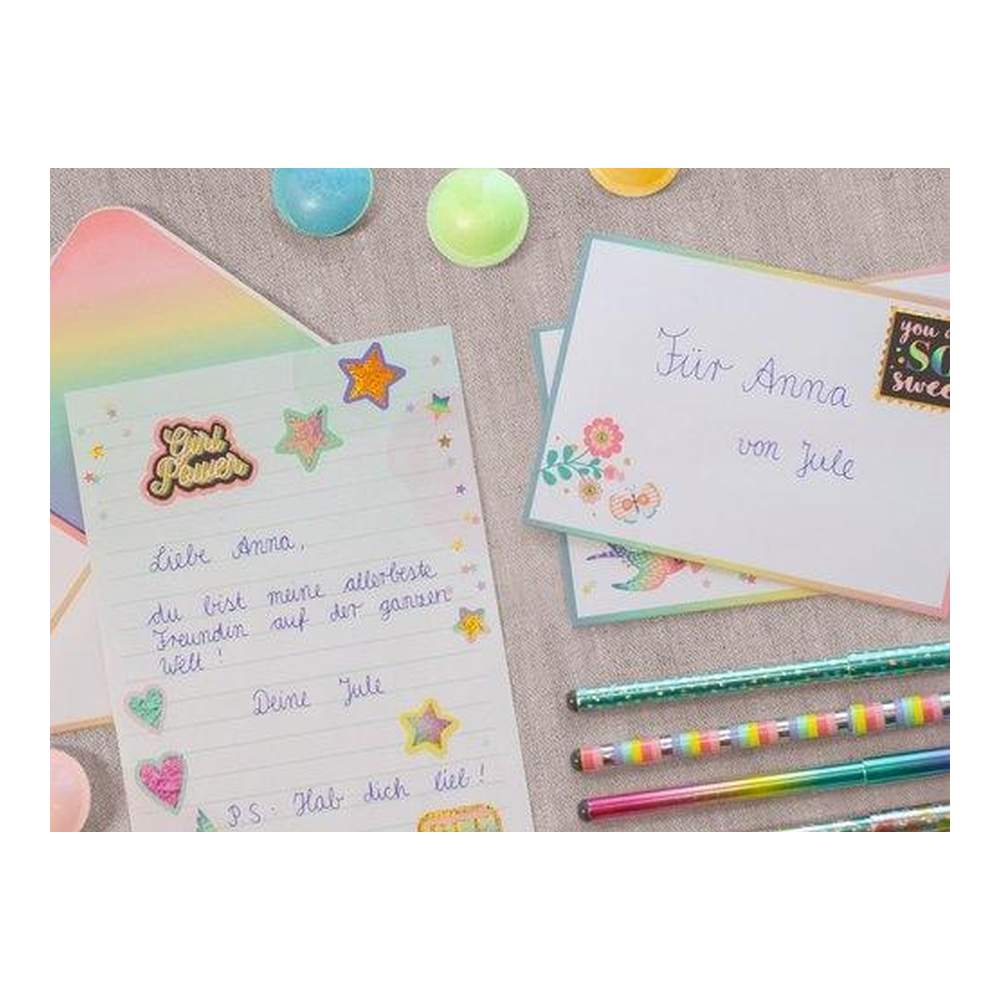 Girl
Power
Liebe Anna,
du bist meine allerbeste
Freundin auf der ganzen
Welt!
Deine Jule
P.S. Hab dich lieb!
Für Anna
von Jule
you
SO
swee